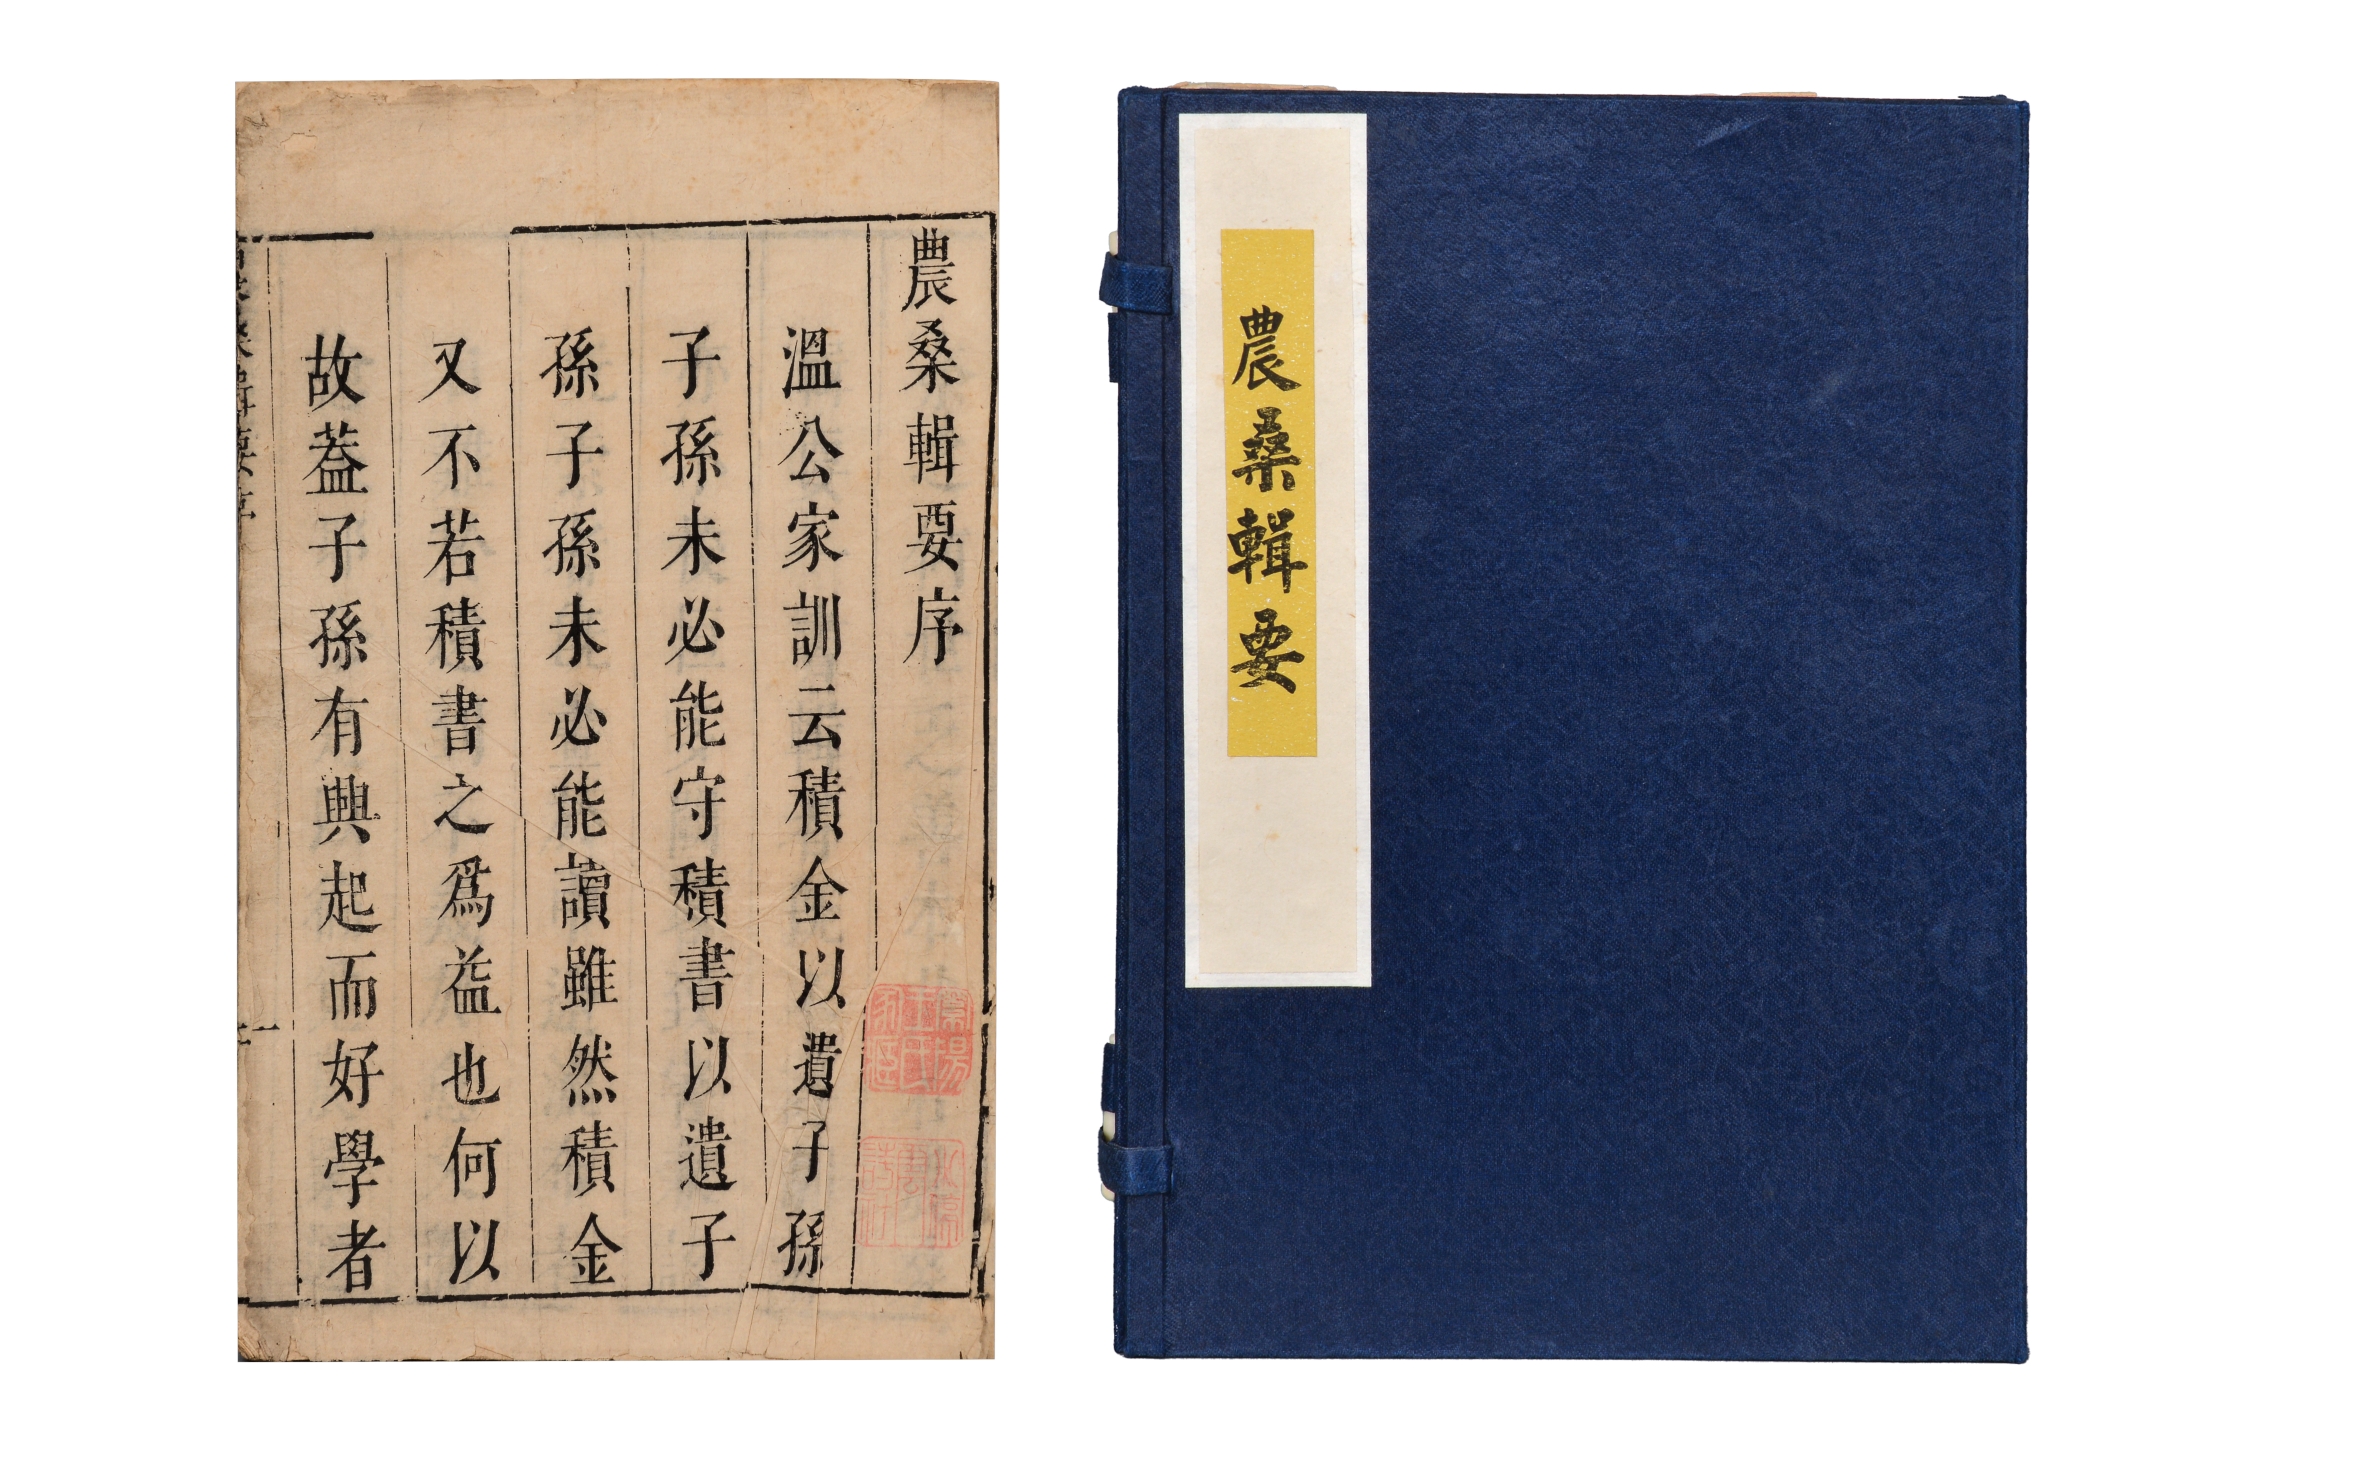 農桑輯要序
溫公家訓云積金以遺子孫
子孫未必能守積書以遺子
孫子孫未必能讀雖然積金
又不若積書之爲益也何以
故蓋子孫有興起而好學者
農桑輯要